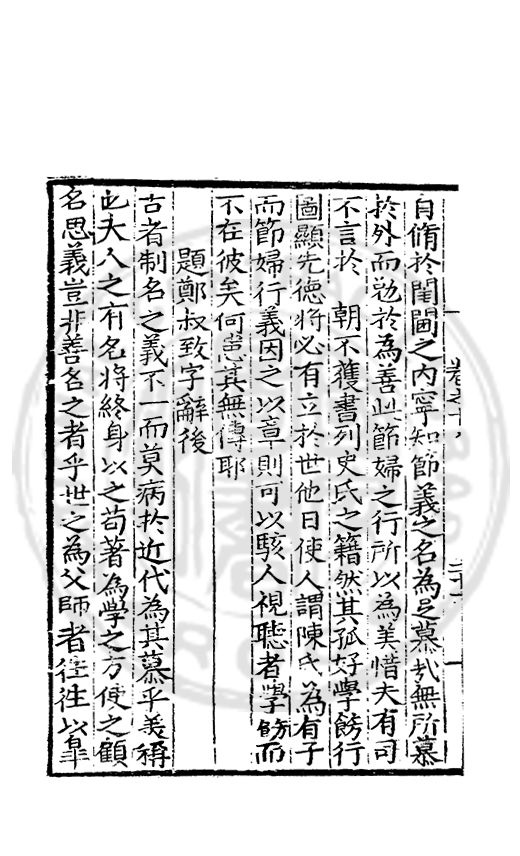 卷之十八 二十一
自脩於閨閫之內寧知節義之名為足慕哉無所慕
於外而勉於為善此節婦之行所以為美惜夫有司
不言於 朝不獲書列史氏之籍然其孤好學飭行
圖顯先德將必有立於世他日使人謂陳氏為有子
而節婦行義因之以章則可以駭人視聽者學飭而
不在彼矣何患其無傳耶
題鄭叔致字辭後
古者制名之義不一而莫病於近代為其慕乎美稱
也夫人之有名將終身以之苟著為學之方使之顧
名思義豈非善名之者乎世之為父師者往往以辠